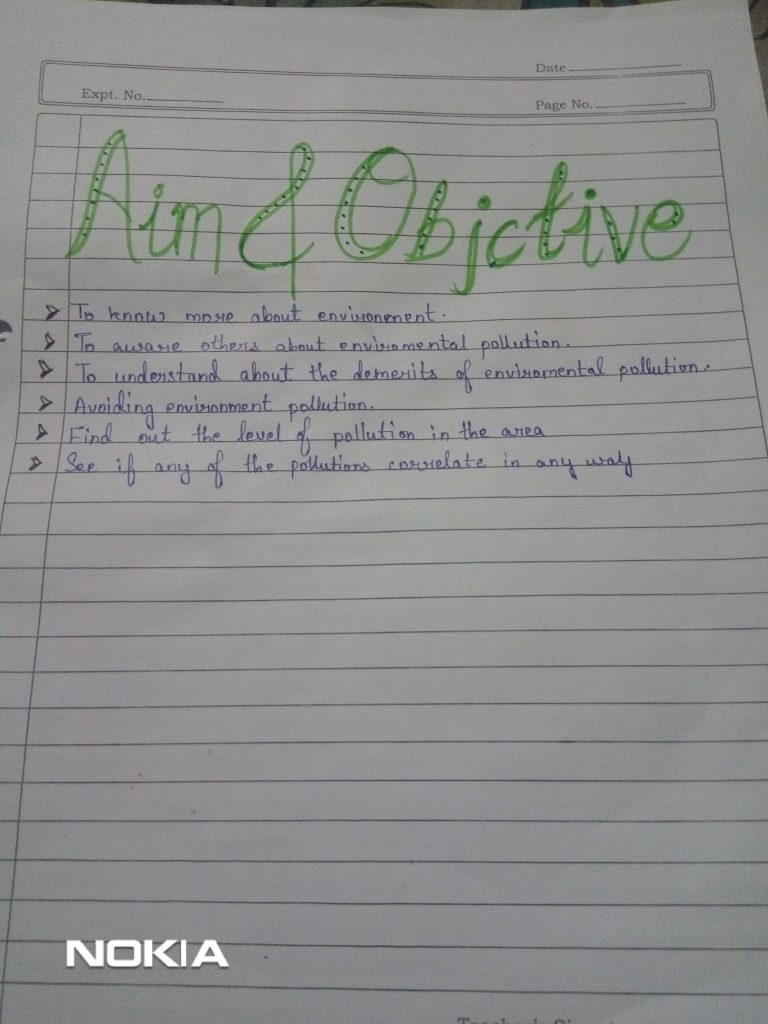 Date
Expt. No.
Page No.
Aim & Objctive
➤ To know more about environenent.
➤ To aware others about enviromental pollution.
➤ To understand about the demerits of enviromental pollution.
➤ Avoiding environment pollution.
➤ Find out the level of pollution in the area
➤ See if any of the pollutions correlate in any way
NOKIA